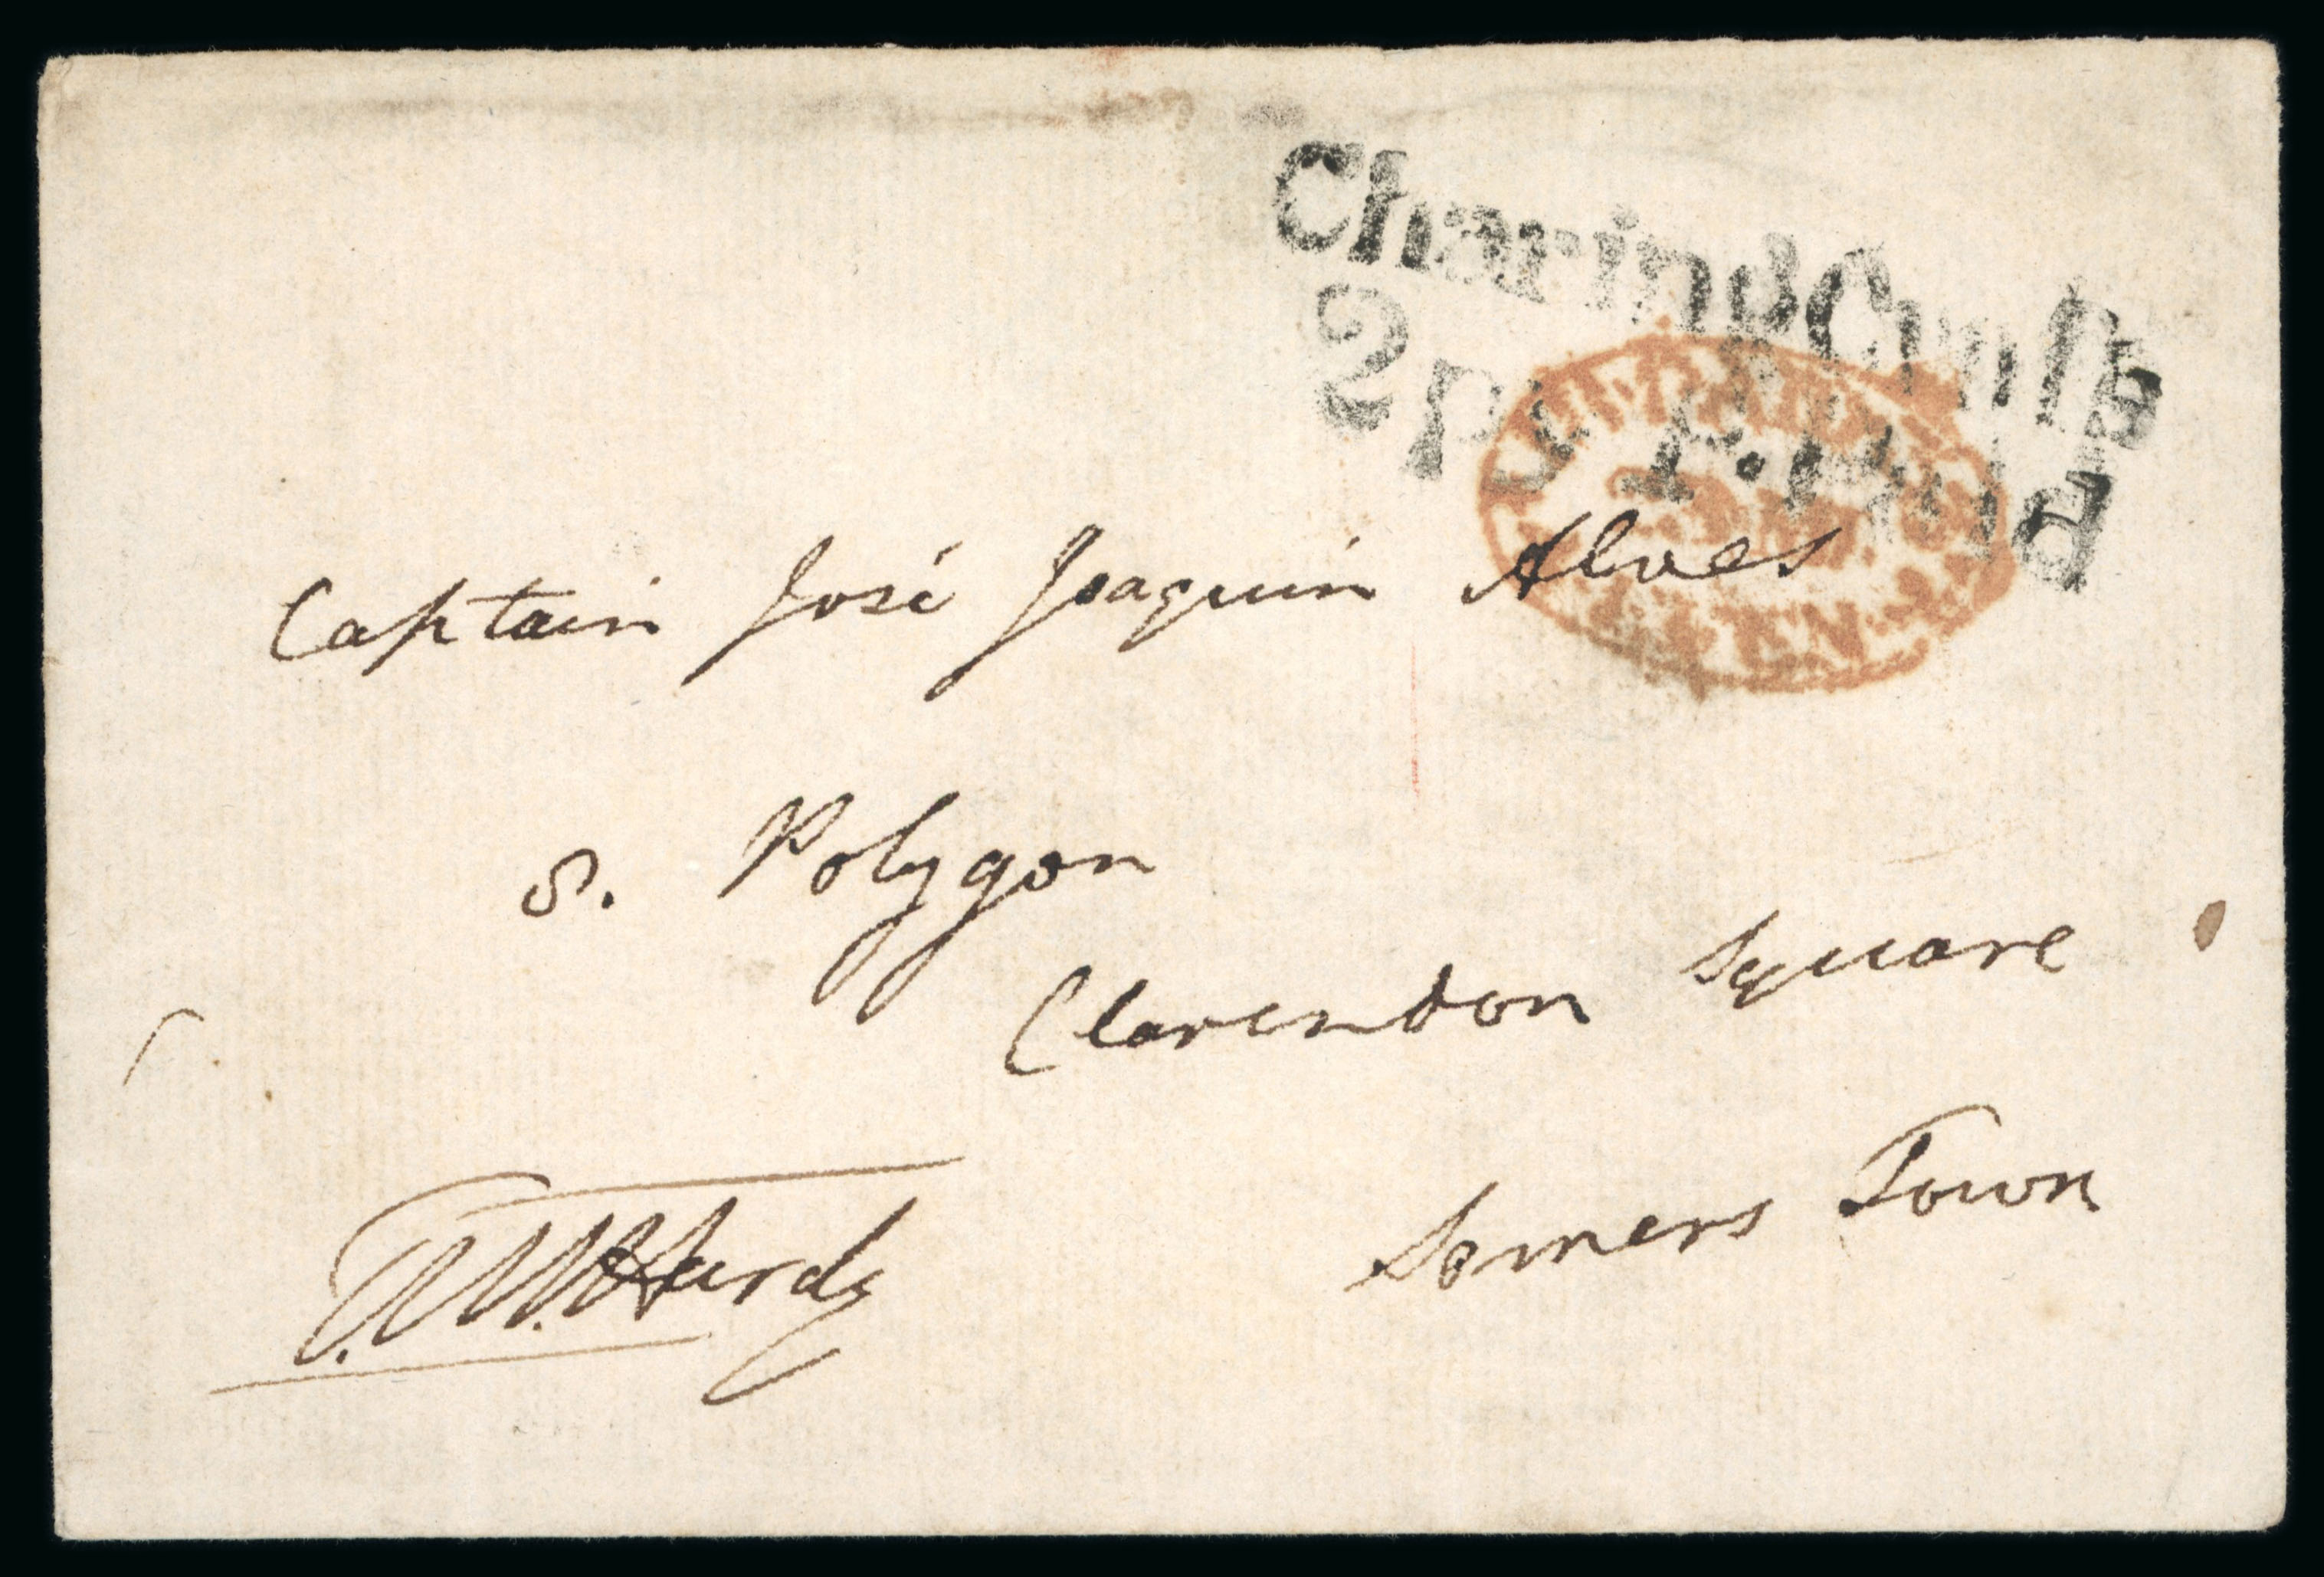 Charing Cross
2 py P. Paid
Captain José Joaquin Alves
8. Polygon
Clarendon Square
Somers Town
T. M. Hardy